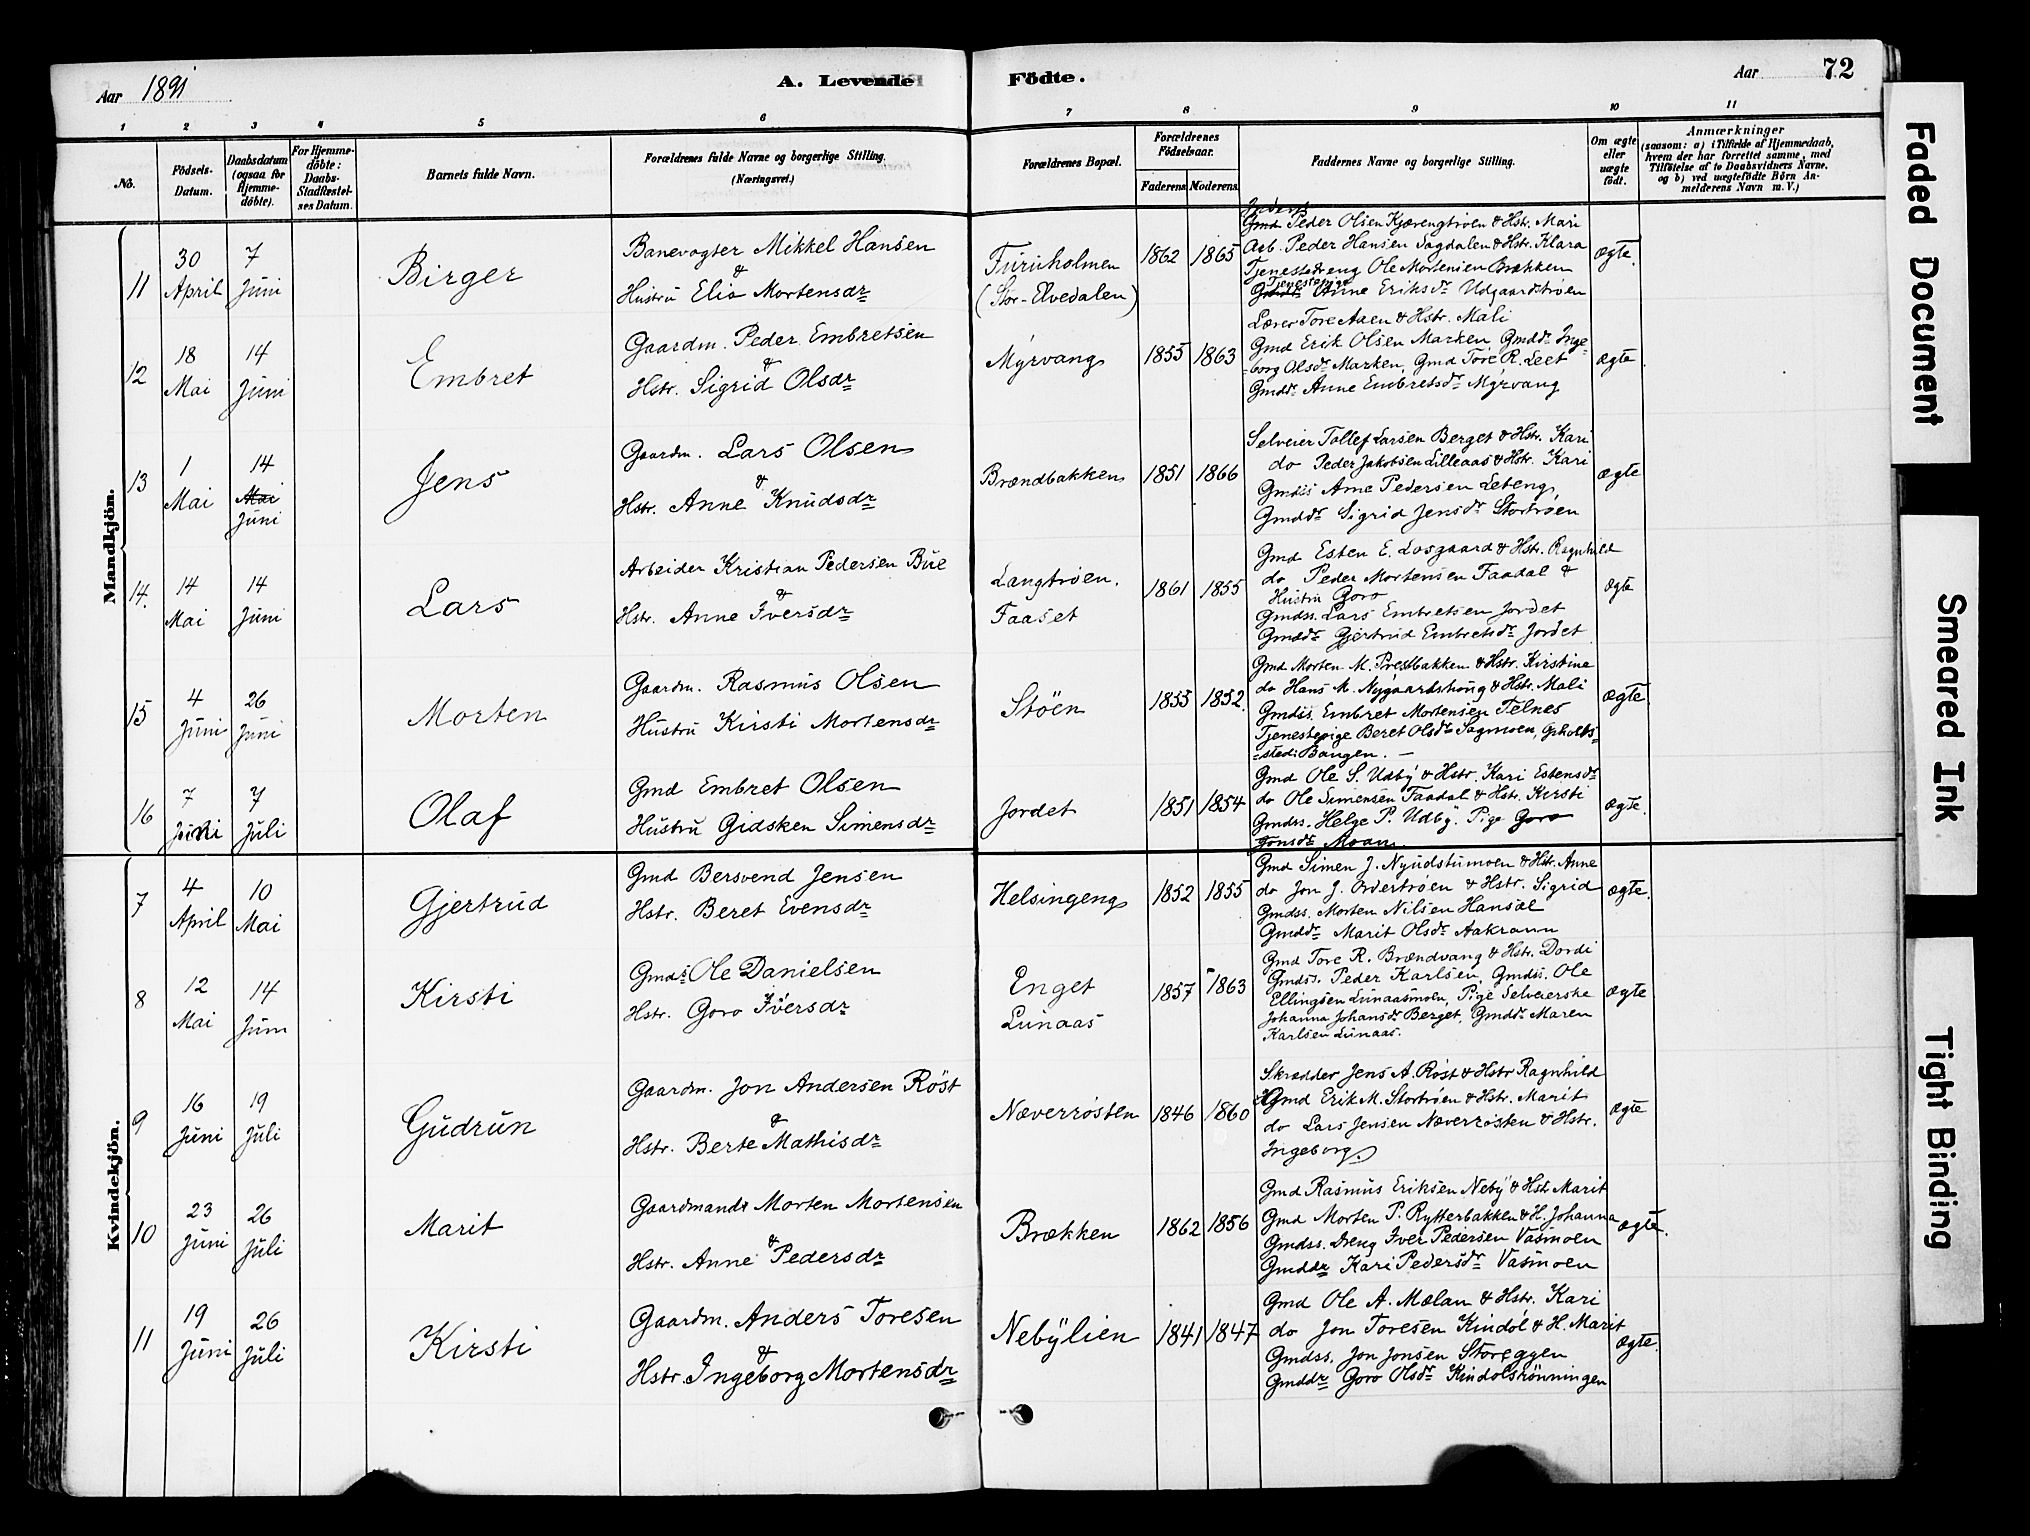 Aar 1891
A. Levende
Födte.
Aar
72
1 2 3 4 5 6 7 8 9 10 11
No.
Födsels-Datum.
Daabsdatum (ogsaa for Hjemme-döbte).
For Hjemme-döbte: Daabs-Stadfæstel-ses Datum.
Barnets fulde Navn.
Forældrenes fulde Navne og borgerlige Stilling. (Næringsvei.)
Forældrenes Bopæl.
Forældrenes Födselsaar.
Faderens Moderens
Faddernes Navne og borgerlige Stilling.
Om ægte eller uægte födt.
Anmærkninger
(saasom: a) i Tilfælde af Hjemmedaab, hvem der har forrettet samme, med Tilföielse af to Daabsvidners Navne, og b) ved uægtefödte Börn An-melderens Navn m. V.)
Mandkjön.
11
30 April
7 Juni
Birger
Banevogter Mikkel Hansen
&
Hustru Elia Mortensdr
Furuholmen
(Stor-Elvedalen)
1862 1865
Gmd Peder Olsen Kjærengtrøen & Hstr. Mari
Arb. Peder Hansen Sagdalen & Hstr. Klara
Tjenestedreng Ole Mortensen Brækken
Tjenestepige
Anne Eriksdr Udgaardstrøen
ægte.
12
18 Mai
14 Juni
Embret
Gaardm. Peder Embretsen
&
Hstr. Sigrid Olsdr
Myrvang
1855 1863
Lærer Tore Aaen & Hstr. Mali
Gmd Erik Olsen Marken, Gmddr. Inge-
-borg Olsdr Marken, Gmd Tore R. Leet
Gmddr. Anne Embretsdr Myrvang
ægte
13
1 Mai
14 Mai Juni
Jens
Gaardm. Lars Olsen
&
Hstr. Anne Knudsdr
Brændbakken
1851 1866
Selveier Tollef Larsen Berget & Hstr. Kari
do Peder Jakobsen Lilleaas & Hstr. Kari
Gmdss Arne Pedersen Leteng
Gmddr Sigrid Jensdr Stortrøen
ægte
14.
14 Mai
14 Juni
Lars
Arbeider Kristian Pedersen Bue
&
Hstr. Anne Iversdr
Langtrøen.
Faaset
1861 1855
Gmd Esten E. Losgaard & Hstr. Ragnhild
do Peder Mortensen Faadal &
Hustru Goro
Gmdss. Lars Embretsen Jordet
Gmddr Gjertrud Embretsdr Jordet
ægte
15
4 Juni
26 Juni
Morten
Gaardm. Rasmus Olsen
Hustru Kirsti Mortensdr
Støen
1855 1852.
Gmd Morten M. Prestbakken & Hstr. Kirstine
do Hans M. Nygaardshaug & Hstr. Mali
Gmdss. Embret Mortensen Telnes
Tjenestepige Beret Olsdr Sagmoen, Opholds-
-sted: Bangen.
ægte.
16
7 Juni
7 Juli
Olaf
Gmd Embret Olsen
Hustru Gidsken Simensdr
Jordet
1851 1854
Gmd Ole S. Udby & Hstr. Kari Estensdr
do Ole Simensen Faadal & Hstr. Kirsti
Gmdss. Helge P. Udby. Pige Goro
Jonsdr Moan.
ægte.
Kvindekjön.
7
4 April
10 Mai
Gjertrud
Gmd Bersvend Jensen
Hstr. Beret Evensdr
Helsingeng
1852 1855
Gmd Simen J. Nyudstumoen & Hstr. Anne
do Jon J. Ordertrøen & Hstr. Sigrid
Gmdss. Morten Nilsen Hansæl
Gmddr. Marit Olsdr Aakrann
ægte.
8
12 Mai
14 Juni
Kirsti
Gmds. Ole Danielsen
Hstr. Goro Iversdr
Enget
Lunaas
1857 1863
Gmd Tore R. Brændvang & Hstr. Dordi
Gmdss. Peder Karlsen, Gmdss. Ole
Ellingsen Lunaasmoen, Pige Selveierske
Johanna Johansdr Berget, Gmddr Maren
Karlsen Lunaas.
ægte
9
16 Juni
19 Juli
Gudrun
Gaardm. Jon Andersen Røst
&
Hstr. Berte Mathisdr
Næverrøsten
1846 1860
Skrædder Jens A. Røst & Hstr Ragnhild
Gmd Erik M. Stortrøen & Hstr. Marit
do Lars Jensen Næverrøsten & Hstr.
Ingeborg
ægte
10
23 Juni
26 Juli
Marit
Gaardmands Morten Mortensen
&
Hstr. Anne Pedersdr
Brækken
1862 1856
Gmd Rasmus Eriksen Neby & Hstr Marit
Gmd Morten P. Rytterbakken & H. Johanna
Gmdss. Dreng Iver Pedersen Vasmoen
Gmddr Kari Pedersdr Vasmoen
ægte.
11
19 Juni
26 Juli
Kirsti
Gaardm. Anders Toresen
&
Hstr. Ingeborg Mortensdr
Nebylien
1841 1847
Gmd Ole A. Mælan & Hstr. Kari
do Jon Toresen Kindøl & H. Marit
Gmdss. Jon Jonsen Storeggen
Gmddr Goro Olsdr Kindølsrønningen
ægte.
Faded Document
Smeared Ink
Tight Binding